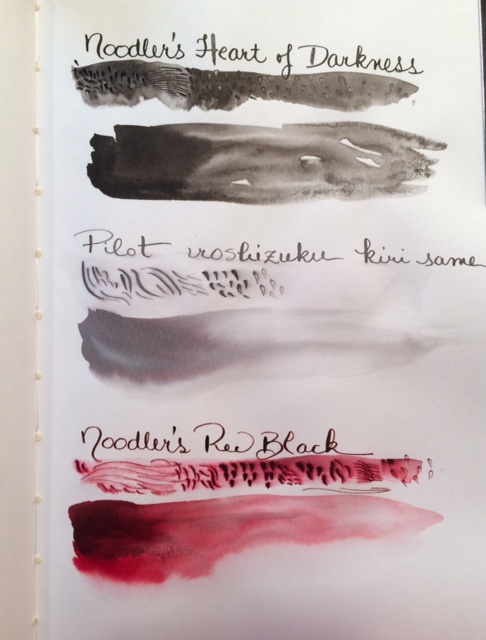 Noodler's Heart of Darkness
Pilot iroshizuku kiri same
Noodler's Red Black